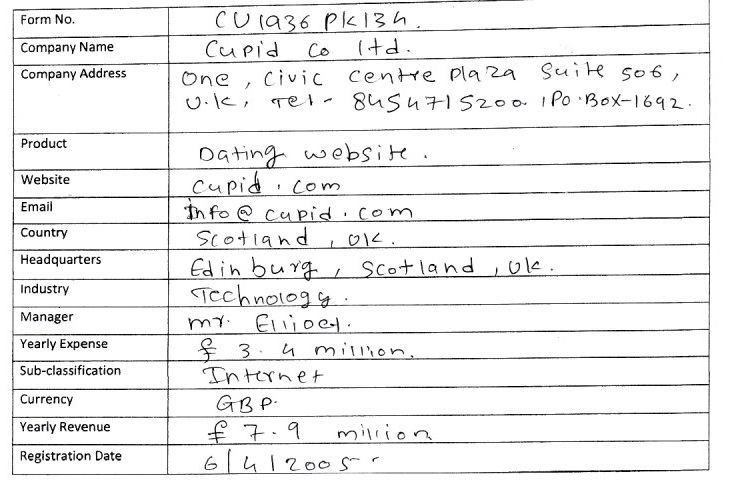 Form No. CU1936 PK134.
Company Name Cupid Co ltd.
Company Address One, Civic Centre Plaza Suite 506,
U.K, Tel - 8454715200, PO.Box-1692.
Product Dating website.
Website cupid.com
Email Info@cupid.com
Country Scotland, UK.
Headquarters Edinburg, Scotland, Uk.
Industry Technology.
Manager mr.
Yearly Expense £ 3.4 million.
Sub-classification Internet
Currency GBP.
Yearly Revenue £ 7.9 million
Registration Date 6/4/2005